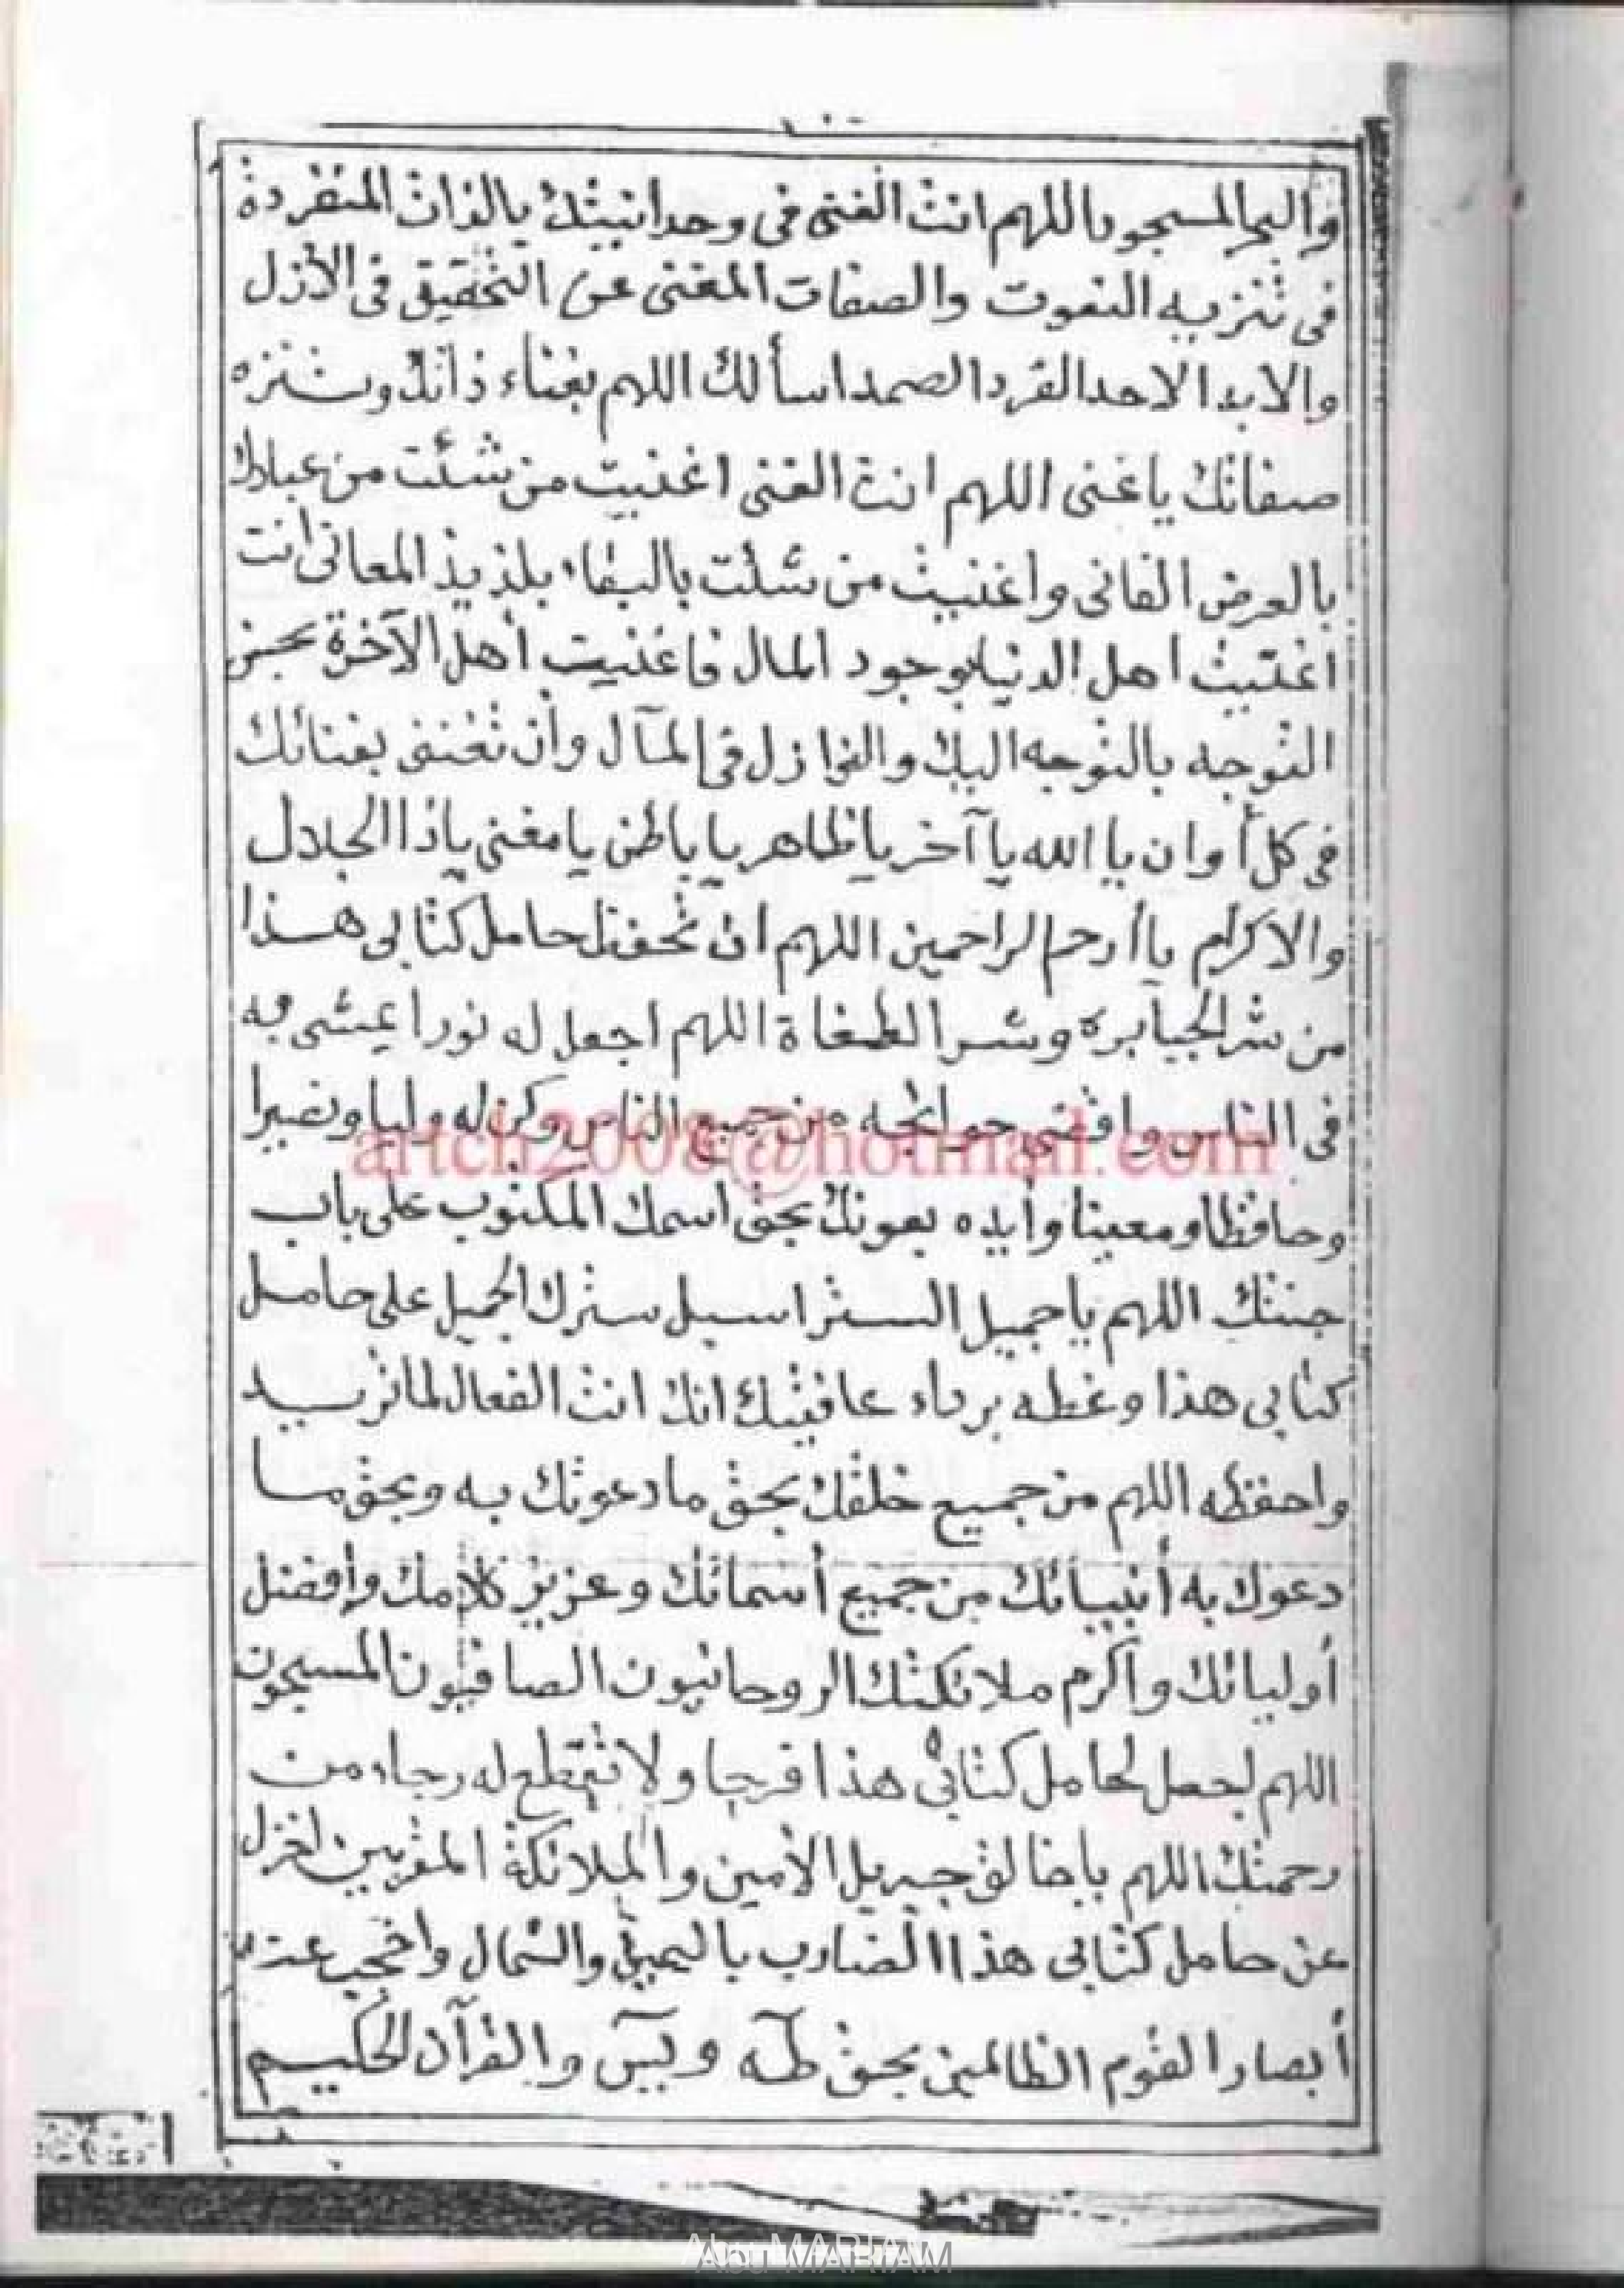 والبحر المسجور اللهم انت الغنى فى وحدانيتك بالذات المنفردة
فى تنزيه النعوت والصفات المغنى عن التحقيق فى الأزل
والابد الاحد الفرد الصمد اسألك اللهم بغناء ذاتك وتنزه
صفاتك يا غنى اللهم انت الغنى اغنيت من شئت من عبادك
بالعرض الفانى واغنيت من شئت بالبقاء بلذيذ المعانى انت
اغنيت اهل الدنيا بوجود المال فاغنيت أهل الآخرة بحسن
التوجه بالتوجه اليك والنوازل فى المآل وأن تغننى بغنائك
فى كل أوان يا الله يا آخر يا ظاهر يا باطن يا مغنى ياذا الجلال
والاكرام يا أرحم الراحمين اللهم ان تحفظ حامل كتابى هذا
من شر الجبابره وشر الطغاة اللهم اجعل له نورا يمشى به
فى الناس واقضى حوائجه من جميع الناس وكن له وليا ونصيرا
artch2008@hotmail.com
وحافظا ومعينا وأيده بعونك بحق اسمك المكتوب على باب
جنتك اللهم يا جميل الستر اسبل سترك الجميل على حامل
كتابى هذا وغطه برداء عافيتك انك انت الفعال لما تريد
واحفظه اللهم من جميع خلقك بحق ما دعوتك به وبحق ما
دعوك به أنبيائك من جميع أسمائك وعزيز كلامك وأفضل
أوليائك وأكرم ملائكتك الروحانيون الصافيون المسبحون
اللهم اجعل لحامل كتابى هذا فرجا ولا تقطع له رجاء من
رحمتك اللهم يا خالق جبريل الأمين والملائكة المقربين اغزل
عن حامل كتابى هذا الضارب باليمين والشمال واحجب عنه
أبصار القوم الظالمين بحق طه ويس والقرآن الحكيم
Abu MARIAM